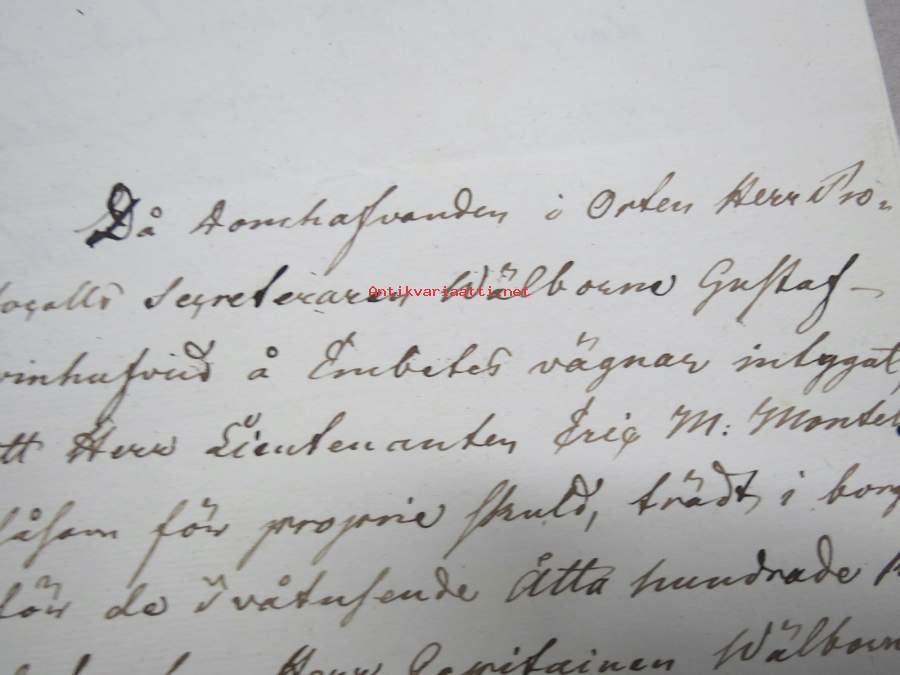 Då Domhafvanden i Orten Herr Pro-
tocolls Secreteraren Wälborne Gustaf
Ehrnhufvud å Embetes vägnar intygat,
att Herr Lieutenanten Eric M: Montel
såsom för proprie skuld, trädt i borg
för de Tvåtusende Åtta hundrade
Herr Capitainen Wälborn
Antikvariaatti.net